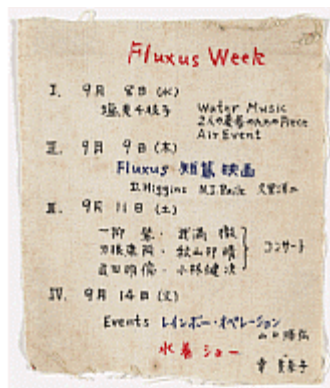 Fluxus Week
I. 9月 8日 (水)
塩見千枝子 Water Music
2人の奏者のためのPiece
Air Event
II. 9月 9日 (木)
Fluxus 短篇 映画
D.Higgins N.J.Paik 久里洋二
III. 9月 11日 (土)
一柳 慧 ・ 武満 徹
刀根康尚 ・ 秋山邦晴 コンサート
武田明倫 ・ 小林健次
IV. 9月 14日 (火)
Events レインボー・オペレーション
山口勝弘
水着 ショー
幸 美奈子